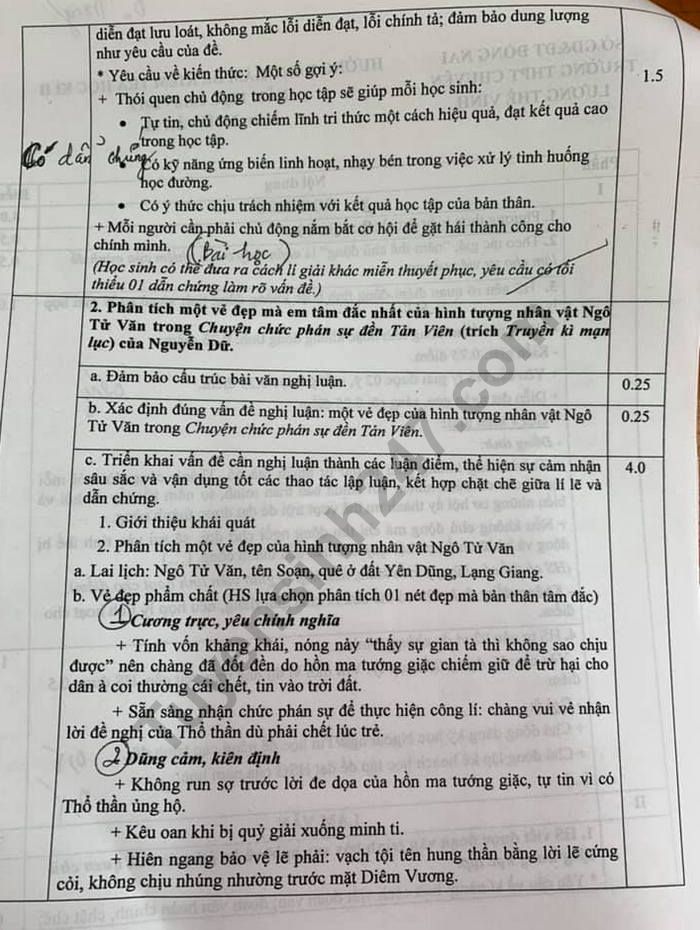 diễn đạt lưu loát, không mắc lỗi diễn đạt, lỗi chính tả; đảm bảo dung lượng
như yêu cầu của đề.
* Yêu cầu về kiến thức: Một số gợi ý:
1.5
+ Thói quen chủ động trong học tập sẽ giúp mỗi học sinh:
• Tự tin, chủ động chiếm lĩnh tri thức một cách hiệu quả, đạt kết quả cao
trong học tập.
Có dẫn chứng
• Có kỹ năng ứng biến linh hoạt, nhạy bén trong việc xử lý tình huống
học đường.
• Có ý thức chịu trách nhiệm với kết quả học tập của bản thân.
+ Mỗi người cần phải chủ động nắm bắt cơ hội để gặt hái thành công cho
chính mình. (Bài học)
(Học sinh có thể đưa ra cách lí giải khác miễn thuyết phục, yêu cầu có tối
thiểu 01 dẫn chứng làm rõ vấn đề.)
2. Phân tích một vẻ đẹp mà em tâm đắc nhất của hình tượng nhân vật Ngô
Tử Văn trong Chuyện chức phán sự đền Tản Viên (trích Truyền kì mạn
lục) của Nguyễn Dữ.
a. Đảm bảo cấu trúc bài văn nghị luận.
0.25
b. Xác định đúng vấn đề nghị luận: một vẻ đẹp của hình tượng nhân vật Ngô
0.25
Tử Văn trong Chuyện chức phán sự đền Tản Viên.
c. Triển khai vấn đề cần nghị luận thành các luận điểm, thể hiện sự cảm nhận
4.0
sâu sắc và vận dụng tốt các thao tác lập luận, kết hợp chặt chẽ giữa lí lẽ và
dẫn chứng.
1. Giới thiệu khái quát
2. Phân tích một vẻ đẹp của hình tượng nhân vật Ngô Tử Văn
a. Lai lịch: Ngô Tử Văn, tên Soạn, quê ở đất Yên Dũng, Lạng Giang.
b. Vẻ đẹp phẩm chất (HS lựa chọn phân tích 01 nét đẹp mà bản thân tâm đắc)
1 Cương trực, yêu chính nghĩa
+ Tính vốn khảng khái, nóng nảy “thấy sự gian tà thì không sao chịu
được” nên chàng đã đốt đền do hồn ma tướng giặc chiếm giữ để trừ hại cho
dân à coi thường cái chết, tin vào trời đất.
+ Sẵn sàng nhận chức phán sự để thực hiện công lí: chàng vui vẻ nhận
lời đề nghị của Thổ thần dù phải chết lúc trẻ.
2 Dũng cảm, kiên định
+ Không run sợ trước lời đe dọa của hồn ma tướng giặc, tự tin vì có
Thổ thần ủng hộ.
+ Kêu oan khi bị quỷ giải xuống minh ti.
+ Hiên ngang bảo vệ lẽ phải: vạch tội tên hung thần bằng lời lẽ cứng
cỏi, không chịu nhúng nhường trước mặt Diêm Vương.
Tuyensinh247.com